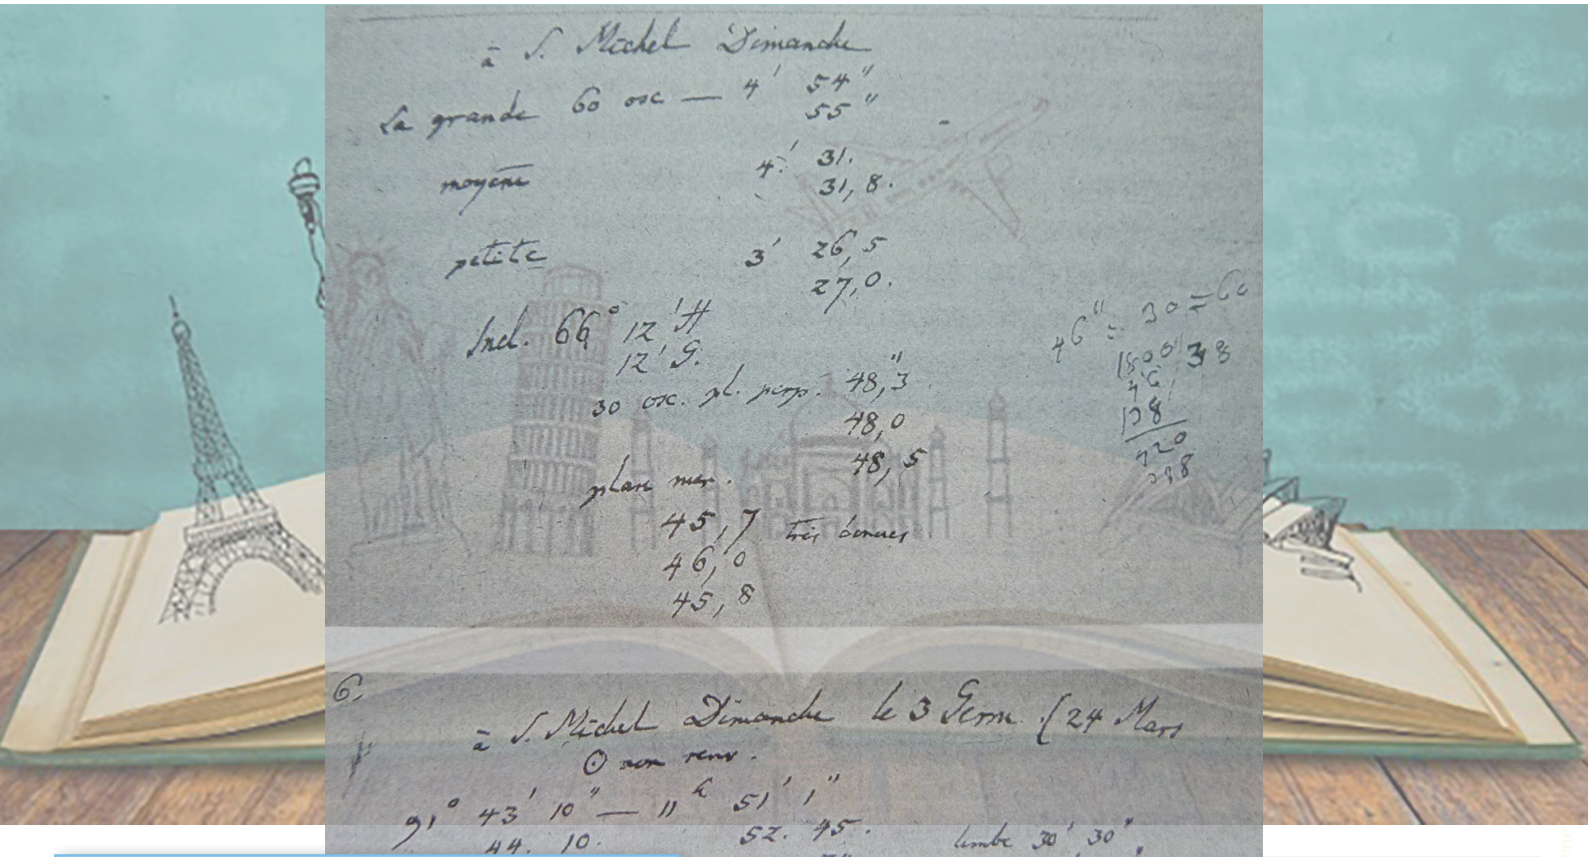 à S. Michel Dimanche
La grande 60 osc — 4' 54"
55"
moyene 4.' 31.
31,8.
petite 3' 26,5
27,0.
Incl. 66° 12' H
12' G.
30 osc. pl. perp. 48,3"
48,0
48,5
plan mer.
45,7 très bonnes
46,0
45,8
46" : 30 = 60
1800
46
138
420
6.
à S. Michel Dimanche le 3 Germ. (24 Mars
⊙ non renv.
91° 43' 10" — 11h 51' 1"
44. 10. 52. 45. limbe 30' 30",